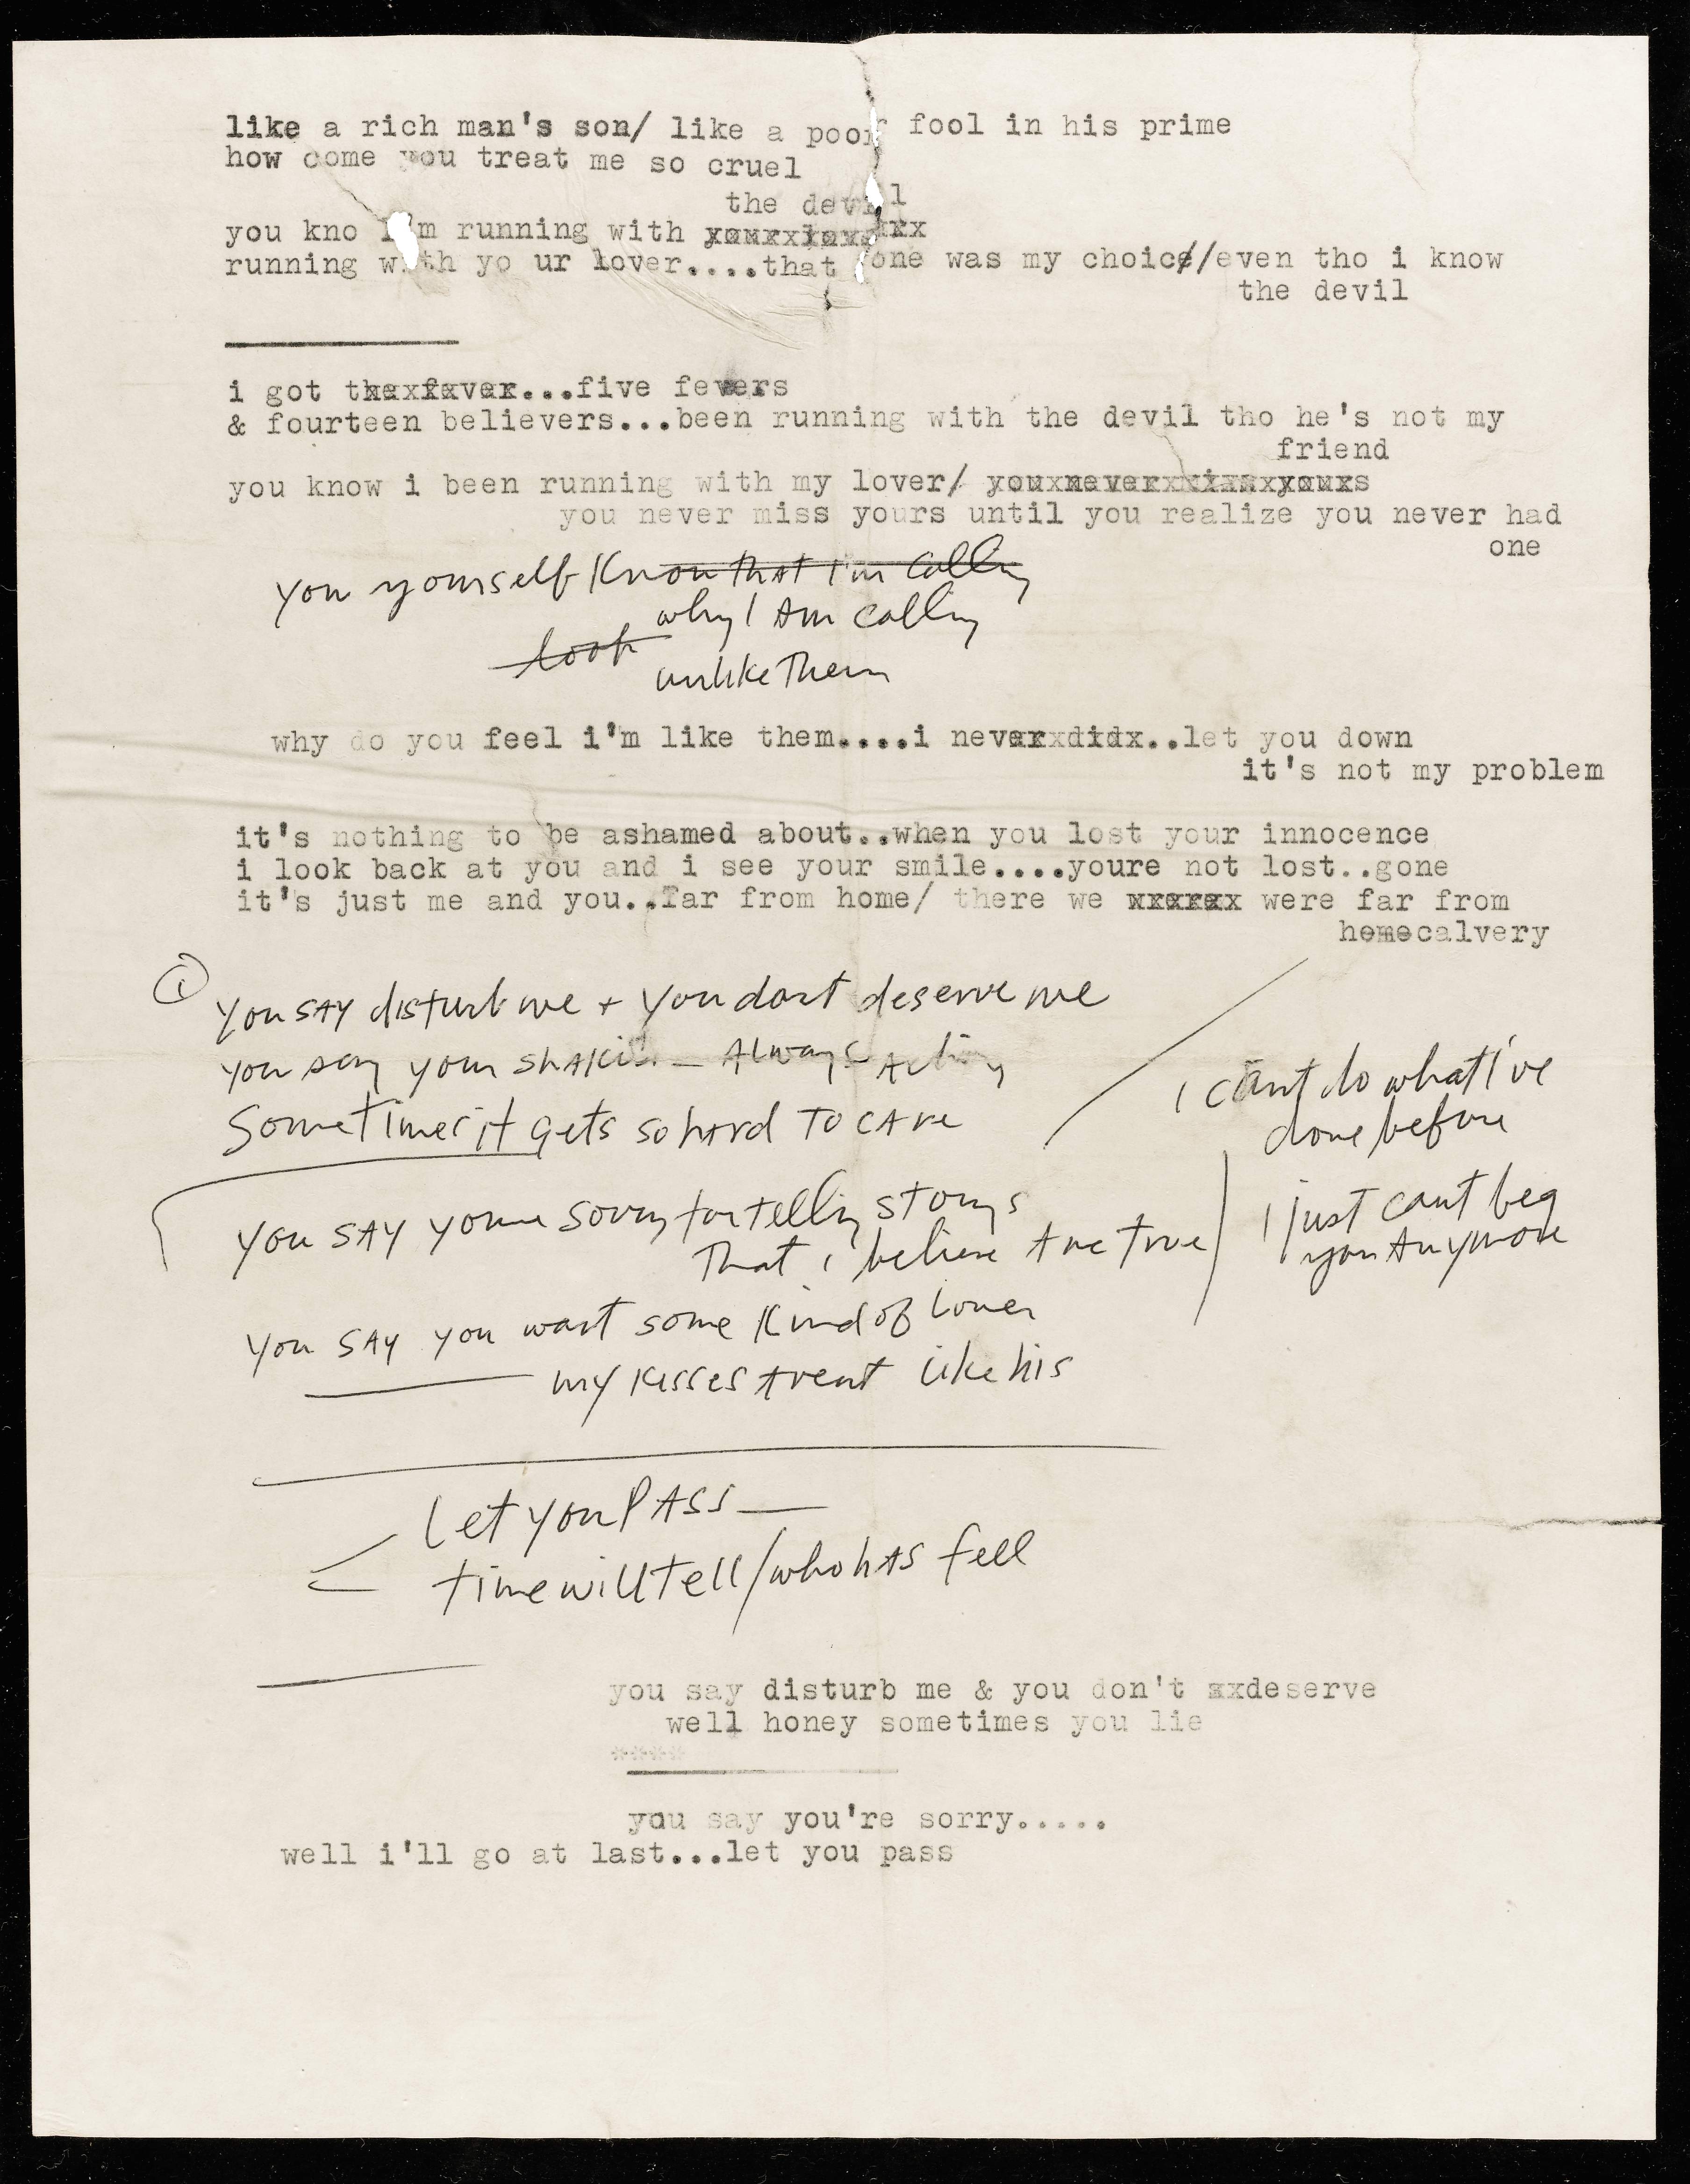 like a rich man's son/ like a poor fool in his prime
how come you treat me so cruel
the devil
you kno I'm running with
running with yo ur lover....that one was my choice//even tho i know
the devil
i got the fever...five fevers
& fourteen believers...been running with the devil tho he's not my
friend
you know i been running with my lover/ you never yours
you never miss yours until you realize you never had
one
You yourself Know that i'm calling
why I Am calling
look
unlike Them
why do you feel i'm like them....i never did..let you down
it's not my problem
it's nothing to be ashamed about..when you lost your innocence
i look back at you and i see your smile....youre not lost..gone
it's just me and you..far from home/ there we were far from
homecalvery
1
You SAY disturb me + You dont deserve me
you say your shakin — Always Acting
Sometimes it gets so hard To cAre
i cant do what I've
done before
You SAY youre sorry for telling storys
That i believe Are true
i just cant beg
you Anymore
You SAY you want some Kind of lover
my kisses Arent like his
Let you PASS —
time will tell/who hAs fell
you say disturb me & you don't xxdeserve
well honey sometimes you lie
****
you say you're sorry.....
well i'll go at last...let you pass